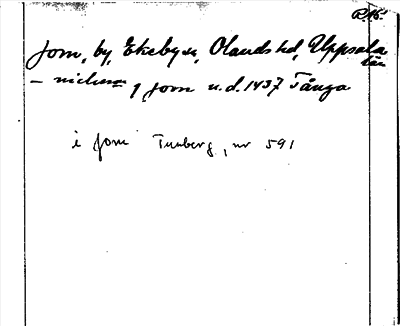 RAÄ
Jom, by, Ekeby sn, Olands hd, Uppsala
län
— j Jom u.d. 1437 Tånga
i Jom Tunberg, nr 591